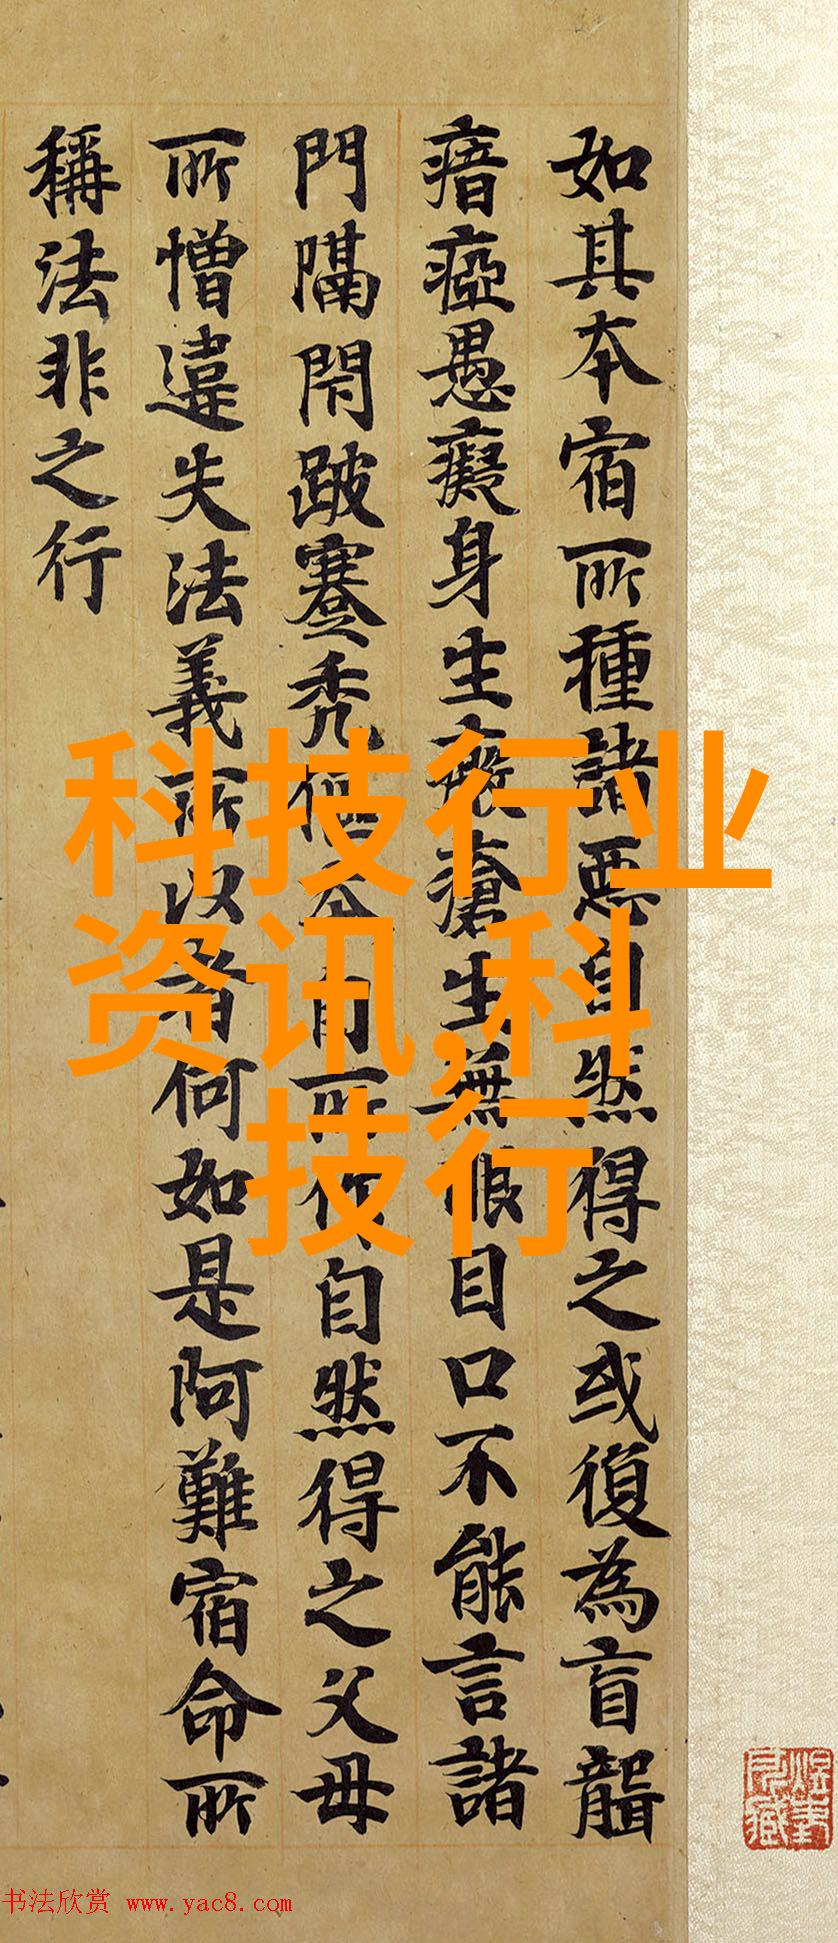 如其本宿所種諸惡自然得之或復為盲聾
瘖瘂愚癡身生瘡生無眼目口不能言諸
門隔閇跛蹇禿自所作自然得之父母
所憎違失法義所以者何如是阿難宿命所
稱法非之行
科技行业
资讯,科
技行
书法欣赏 www.yac8.com